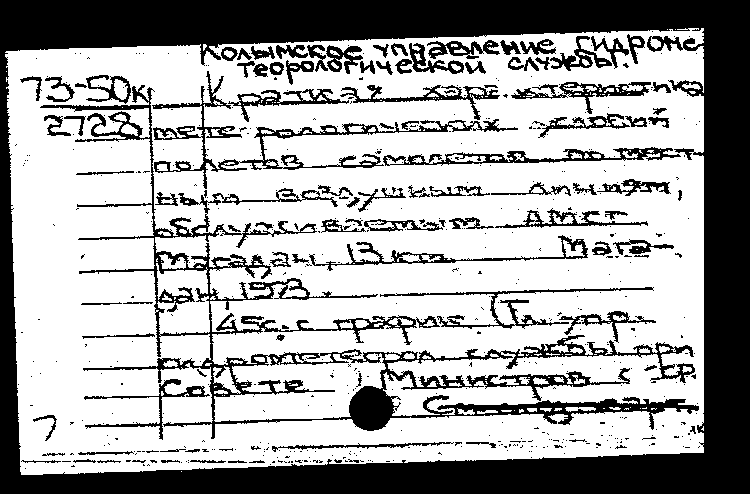 Колымское управление гидроме-
теорологической службы.
73-50к Краткая характеристика
2728 метеорологических условий
полетов самолетов по мест-
ным воздушным линиям,
обслуживаемым АМСГ
Магадан, 13 км. Мага-
дан, 1973.
45с. с график. (Гл. упр.
гидрометеорол. службы при
Совете Министров СССР.
См. след. карт.
7